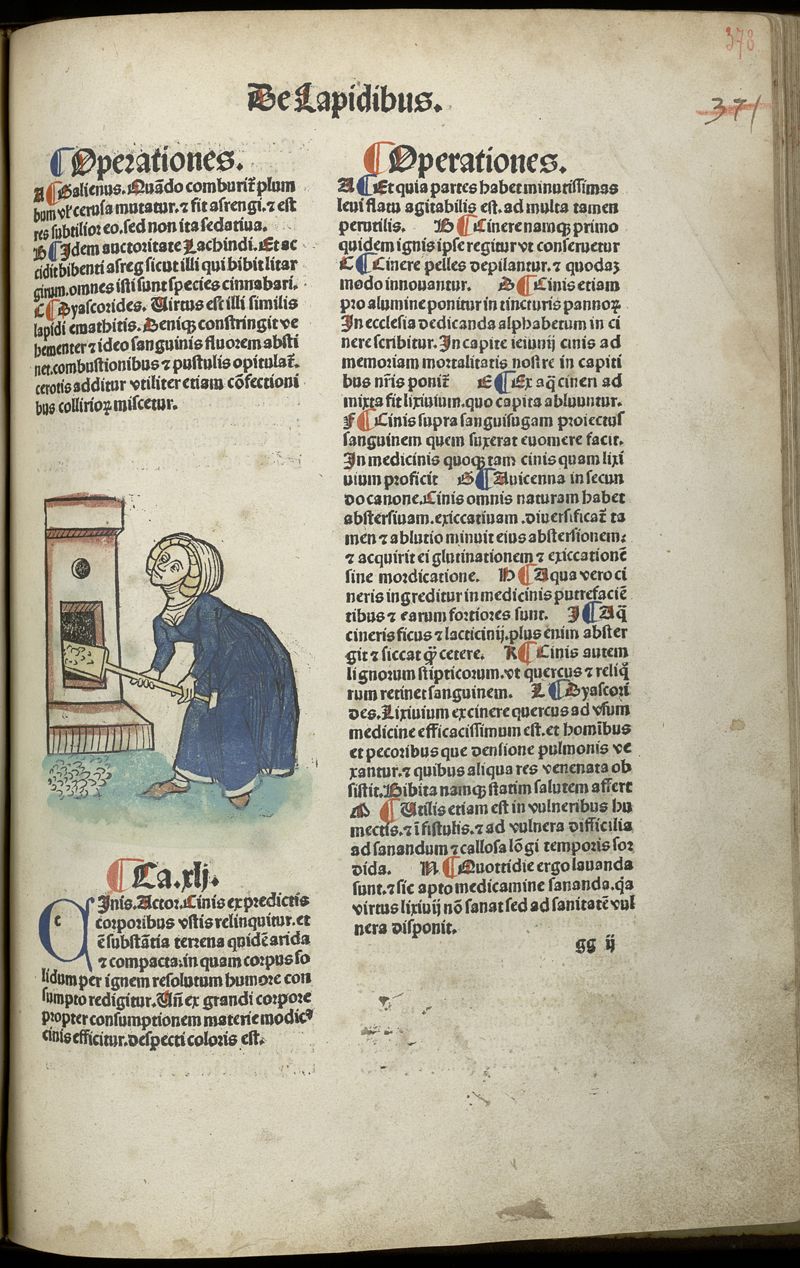 378
De Lapidibus.
371
¶ Operationes.
A ¶ Galienus. Quãdo comburit᷑ plum
bum vl' cerusa mutatur. ⁊ fit asrengi. ⁊ est
res subtilior eo. sed non ita sedatiua.
B ¶ Idem auctoritate Lachindi. Et ac
cidit bibenti asreg sicut illi qui bibit litar
girum. omnes isti sunt species cinnabari.
C ¶ Dyascorides. Uirtus est illi similis
lapidi emathitis. Deniq; constringit ve
hementer ⁊ ideo sanguinis fluorem absti
net. combustionibus ⁊ pustulis opitulat᷑.
cerotis additur vtiliter etiam cõfectioni
bus collirioꝝ miscetur.
¶ Ca. xlj.
CInis. Actor. Cinis ex predictis
corporibus vstis relinquitur. et
ẽ substãtia terrena quidẽ arida
⁊ compacta. in quam corpus so
lidum per ignem resolutum humore con
sumpto redigitur. Uñ ex grandi corpore
propter consumptionem materie modicꝰ
cinis efficitur. despecti coloris est.
¶ Operationes.
A ¶ Et quia partes habet minutissimas
leui flatu agitabilis est. ad multa tamen
perutilis. B ¶ Cinere namq; primo
quidem ignis ipse regitur vt conseruetur
C ¶ Cinere pelles depilantur. ⁊ quodaʒ
modo innouantur. D ¶ Cinis etiam
pro alumine ponitur in tincturis pannoꝝ.
In ecclesia dedicanda alphabetum in ci
nere scribitur. In capite ieiunij cinis ad
memoriam mortalitatis nostre in capiti
bus nr̃is ponit᷑ E ¶ Ex aq̃ cineri ad
mixta fit lixiuium. quo capita abluuntur.
F ¶ Cinis supra sanguisugam proiectus
sanguinem quem suxerat euomere facit.
In medicinis quoq; tam cinis quam lixi
uium proficit G ¶ Auicenna in secun
do canone. Cinis omnis naturam habet
abstersiuam. exiccatiuam. diuersificat᷑ ta
men ⁊ ablutio minuit eius abstersionem:
⁊ acquirit ei glutinationem ⁊ exiccationẽ
sine mordicatione. H ¶ Aqua vero ci
neris ingreditur in medicinis putrefaciẽ
tibus ⁊ earum fortiores sunt. I ¶ Aq̃
cineris ficus ⁊ lacticinij. plus enim abster
git ⁊ siccat q̃ cetere. K ¶ Cinis autem
lignorum stipticorum. vt quercus ⁊ reliq̃
rum retinet sanguinem. L ¶ Dyascori
des. Lixiuium ex cinere quercus ad vsum
medicine efficacissimum est. et homĩbus
et pecoribus que densione pulmonis ve
xantur. ⁊ quibus aliqua res venenata ob
sistit. Bibita namq; statim salutem affert
M ¶ Utilis etiam est in vulneribus hu
mectis. ⁊ ĩ fistulis. ⁊ ad vulnera difficilia
ad sanandum ⁊ callosa lõgi temporis sor
dida. N ¶ Quottidie ergo lauanda
sunt. ⁊ sic apto medicamine sananda. q̃a
virtus lixiuij nõ sanat sed ad sanitatẽ vul
nera disponit.
gg ij